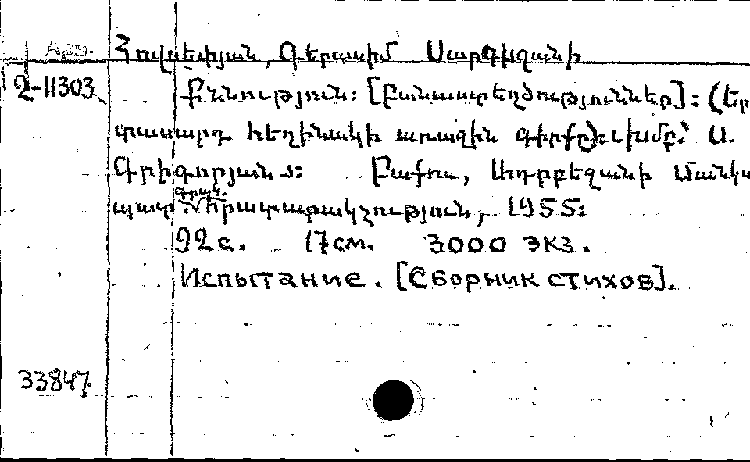 Арм.
Հովսեփյան, Գերասիմ Սարգիզանի
2-11303 Քննություն: [Բանաստեղծություններ]: (Եր
տասարդ հեղինակի առաջին գիրքը): Խմբ՝ Ա.
Գրիգորյանս: Բաքու, Ադրբեջանի Մանկա
պատ գրակ. հրատարակչություն, 1955:
92 с. 17 см. 3000 экз.
Испытание. [Сборник стихов].
33847